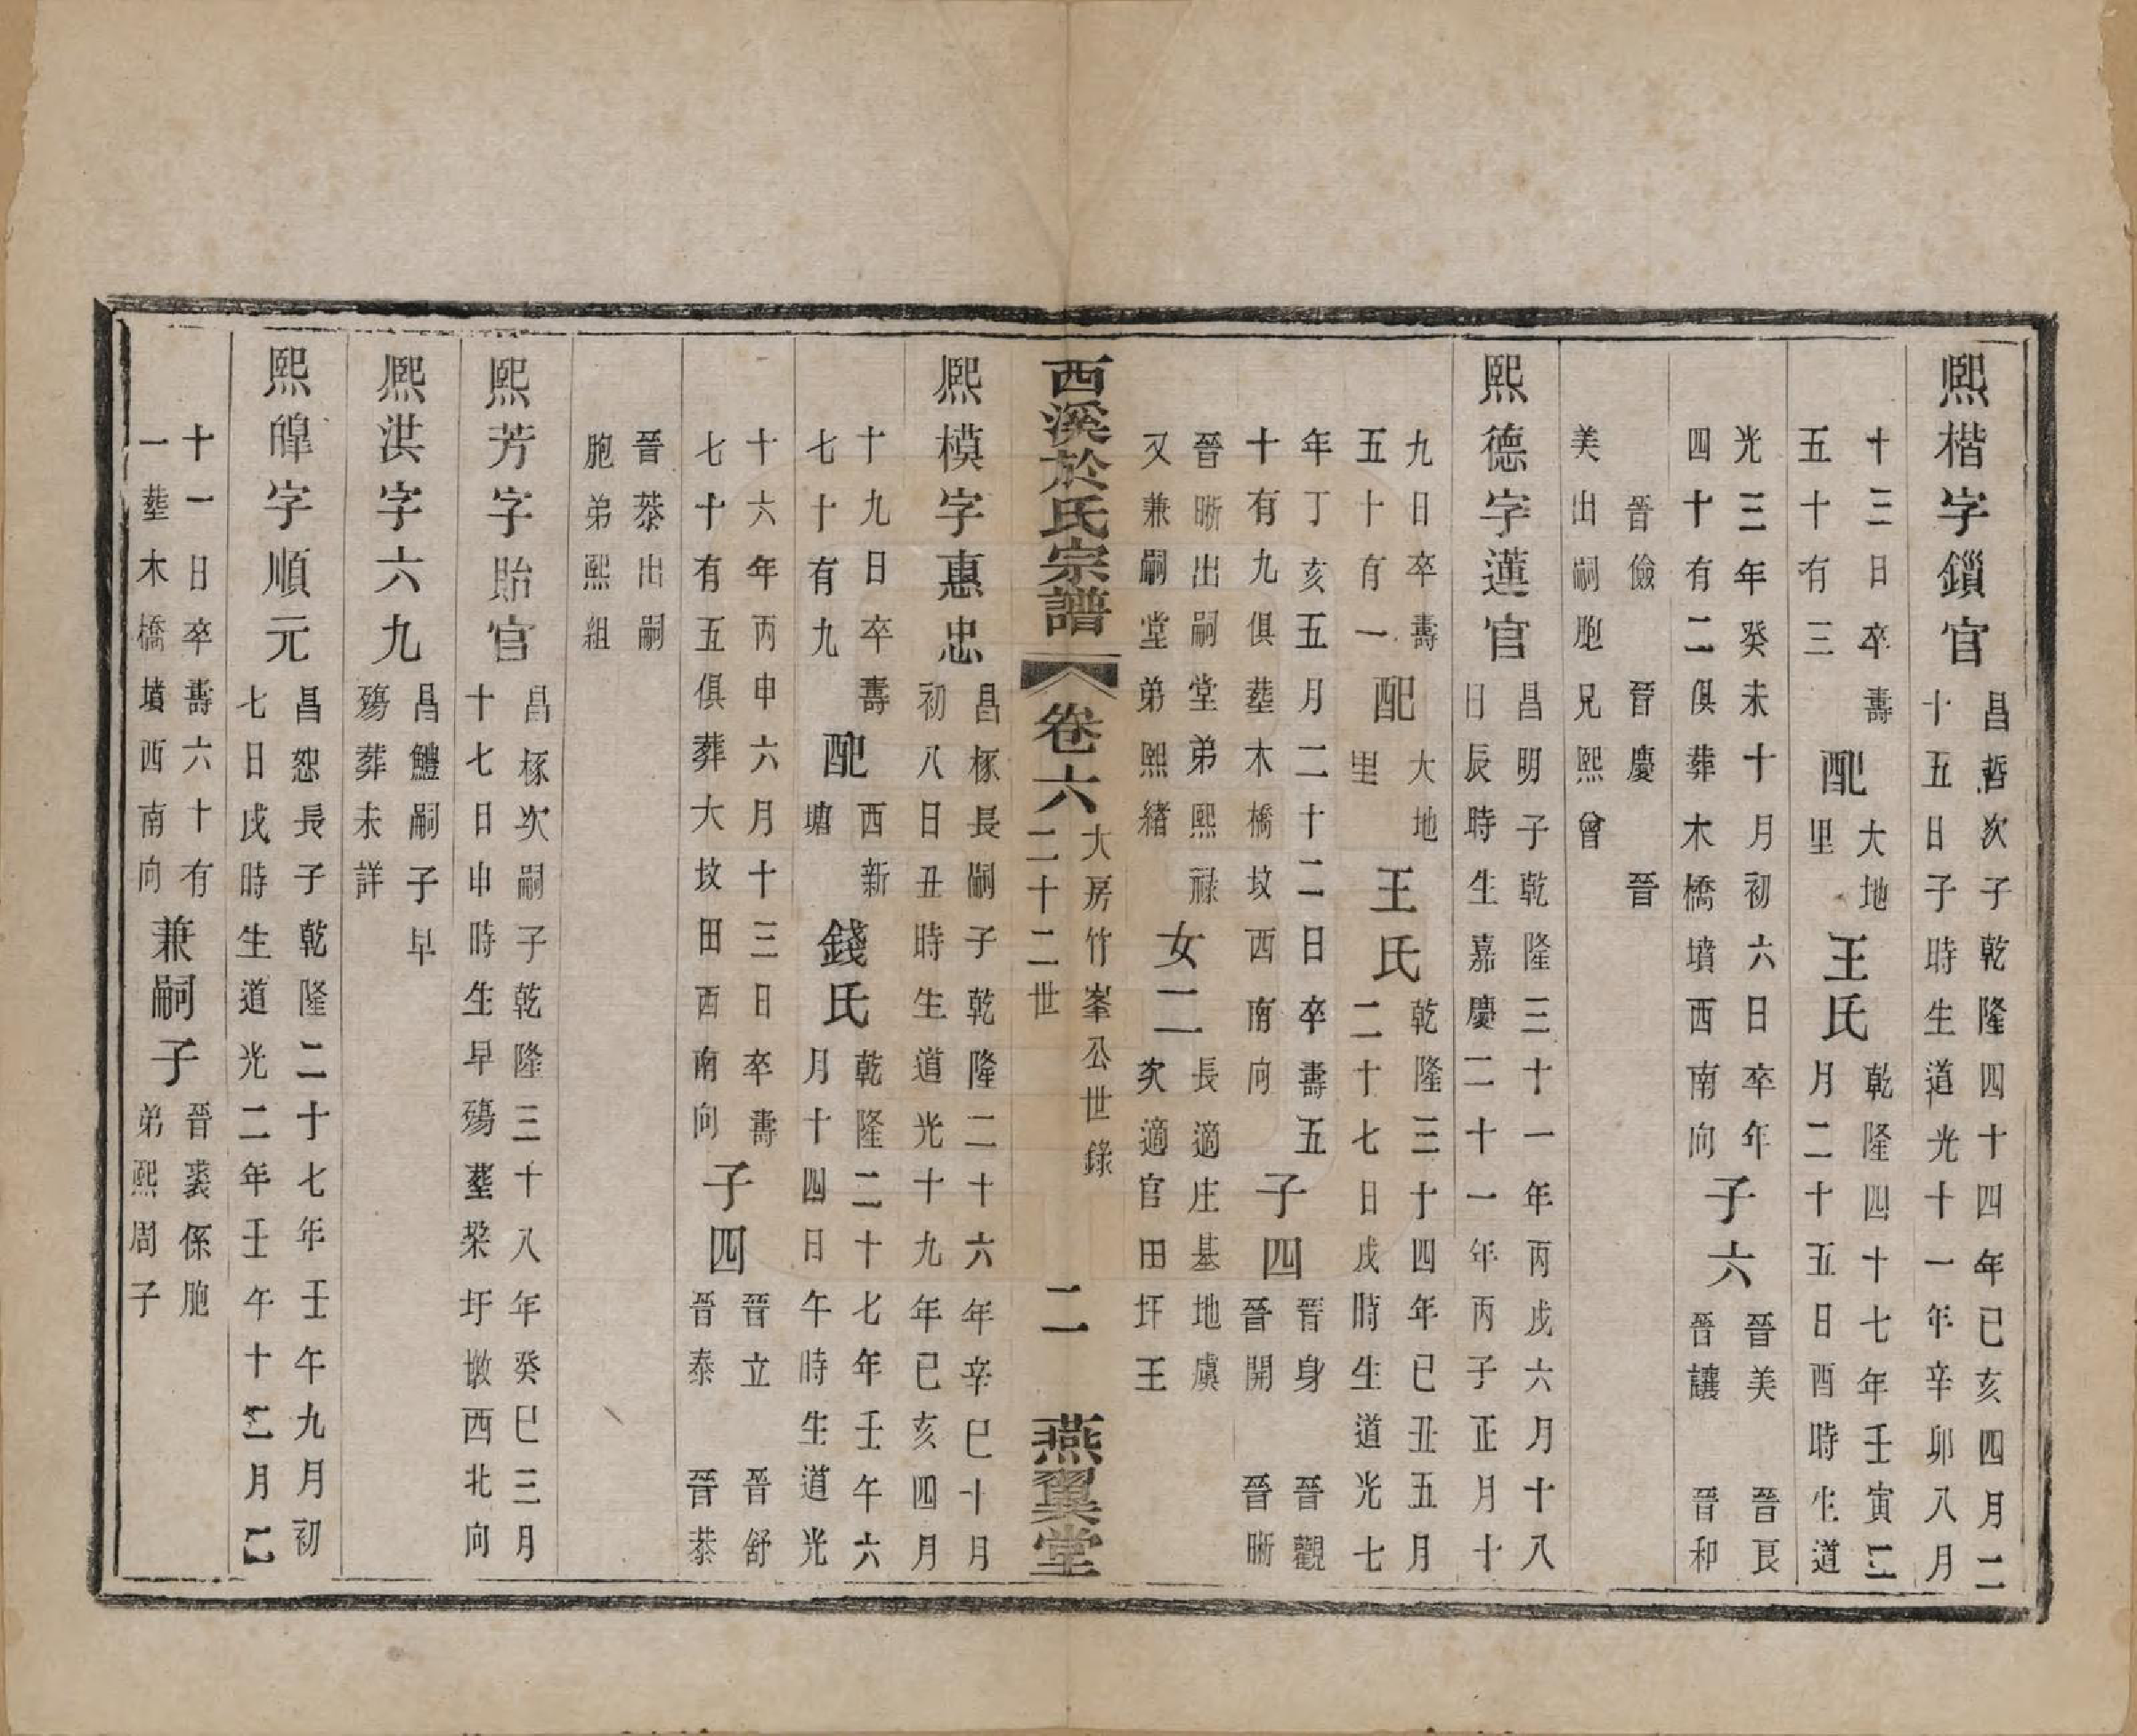 熙楷字鎖官
昌哲次子乾隆四十四年已亥四月二
十五日子時生道光十一年辛卯八月
十三日卒壽
五十有三
配
大地
里
王氏
乾隆四十七年壬寅二
月二十五日酉時生道
光三年癸未十月初六日卒年
四十有二俱葬木橋墳西南向
子六
晉美 晉長
晉讓 晉和
晉儉 晉慶 晉
美出嗣胞兄熙曾
熙德字蓮官
昌明子乾隆三十一年丙戌六月十八
日辰時生嘉慶二十一年丙子正月十
九日卒壽
五十有一
配
大地
里
王氏
乾隆三十四年已丑五月
二十七日戌時生道光七
年丁亥五月二十二日卒壽五
十有九俱塟木橋坟西南向
子四
晉身 晉觀
晉開 晉晰
晉晰出嗣堂弟熙祿
又兼嗣堂弟熙緒
女二
長適庄基地虞
次適官田圩王
西溪於氏宗譜
卷六
大房竹峯公世錄
二十二世
二
燕翼堂
熙模字惪忠
昌椓長嗣子乾隆二十六年辛巳十月
初八日丑時生道光十九年已亥四月
十九日卒壽
七十有九
配
西新
塘
錢氏
乾隆二十七年壬午六
月十四日午時生道光
十六年丙申六月十三日卒壽
七十有五俱葬大坟田西南向
子四
晉立 晉舒
晉泰 晉菾
晉菾出嗣
胞弟熙組
熙芳字貽官
昌椓次嗣子乾隆三十八年癸巳三月
十七日申時生早殤塟梁圩墩西北向
熙洪字六九
昌鱧嗣子早
殤葬未詳
熙皥字順元
昌恕長子乾隆二十七年壬午九月初
七日戌時生道光二年壬午十二月二
十一日卒壽六十有
一塟木橋墳西南向
兼嗣子
晉裘係胞
弟熙周子